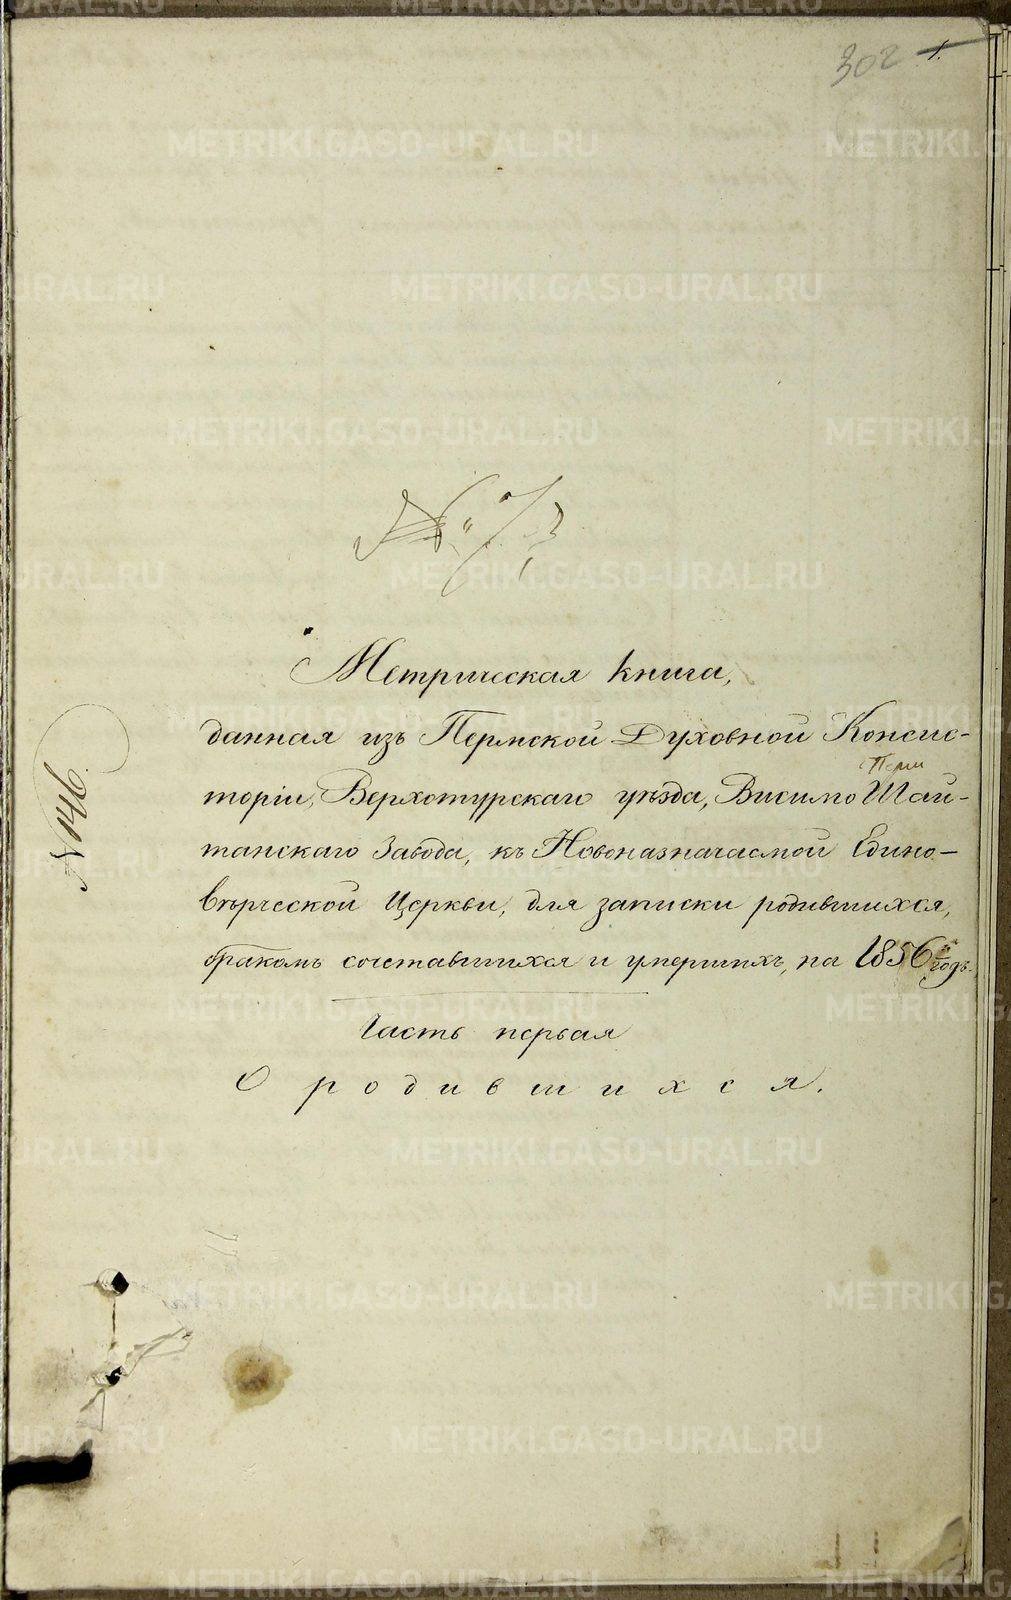 302 1.
№ 73
Метрическая книга,
данная изъ Пермской Духовной Консис-
торіи, Верхотурскаго уѣзда, Висимо Шай-
танскаго завода, къ Новоназначаемой Едино-
вѣрческой Церкви, для записки родившихся,
бракомъ сочетавшихся и умершихъ, на 1856й годъ.
Часть первая
О родившихся.
№ 146
METRIKI.GASO-URAL.RU